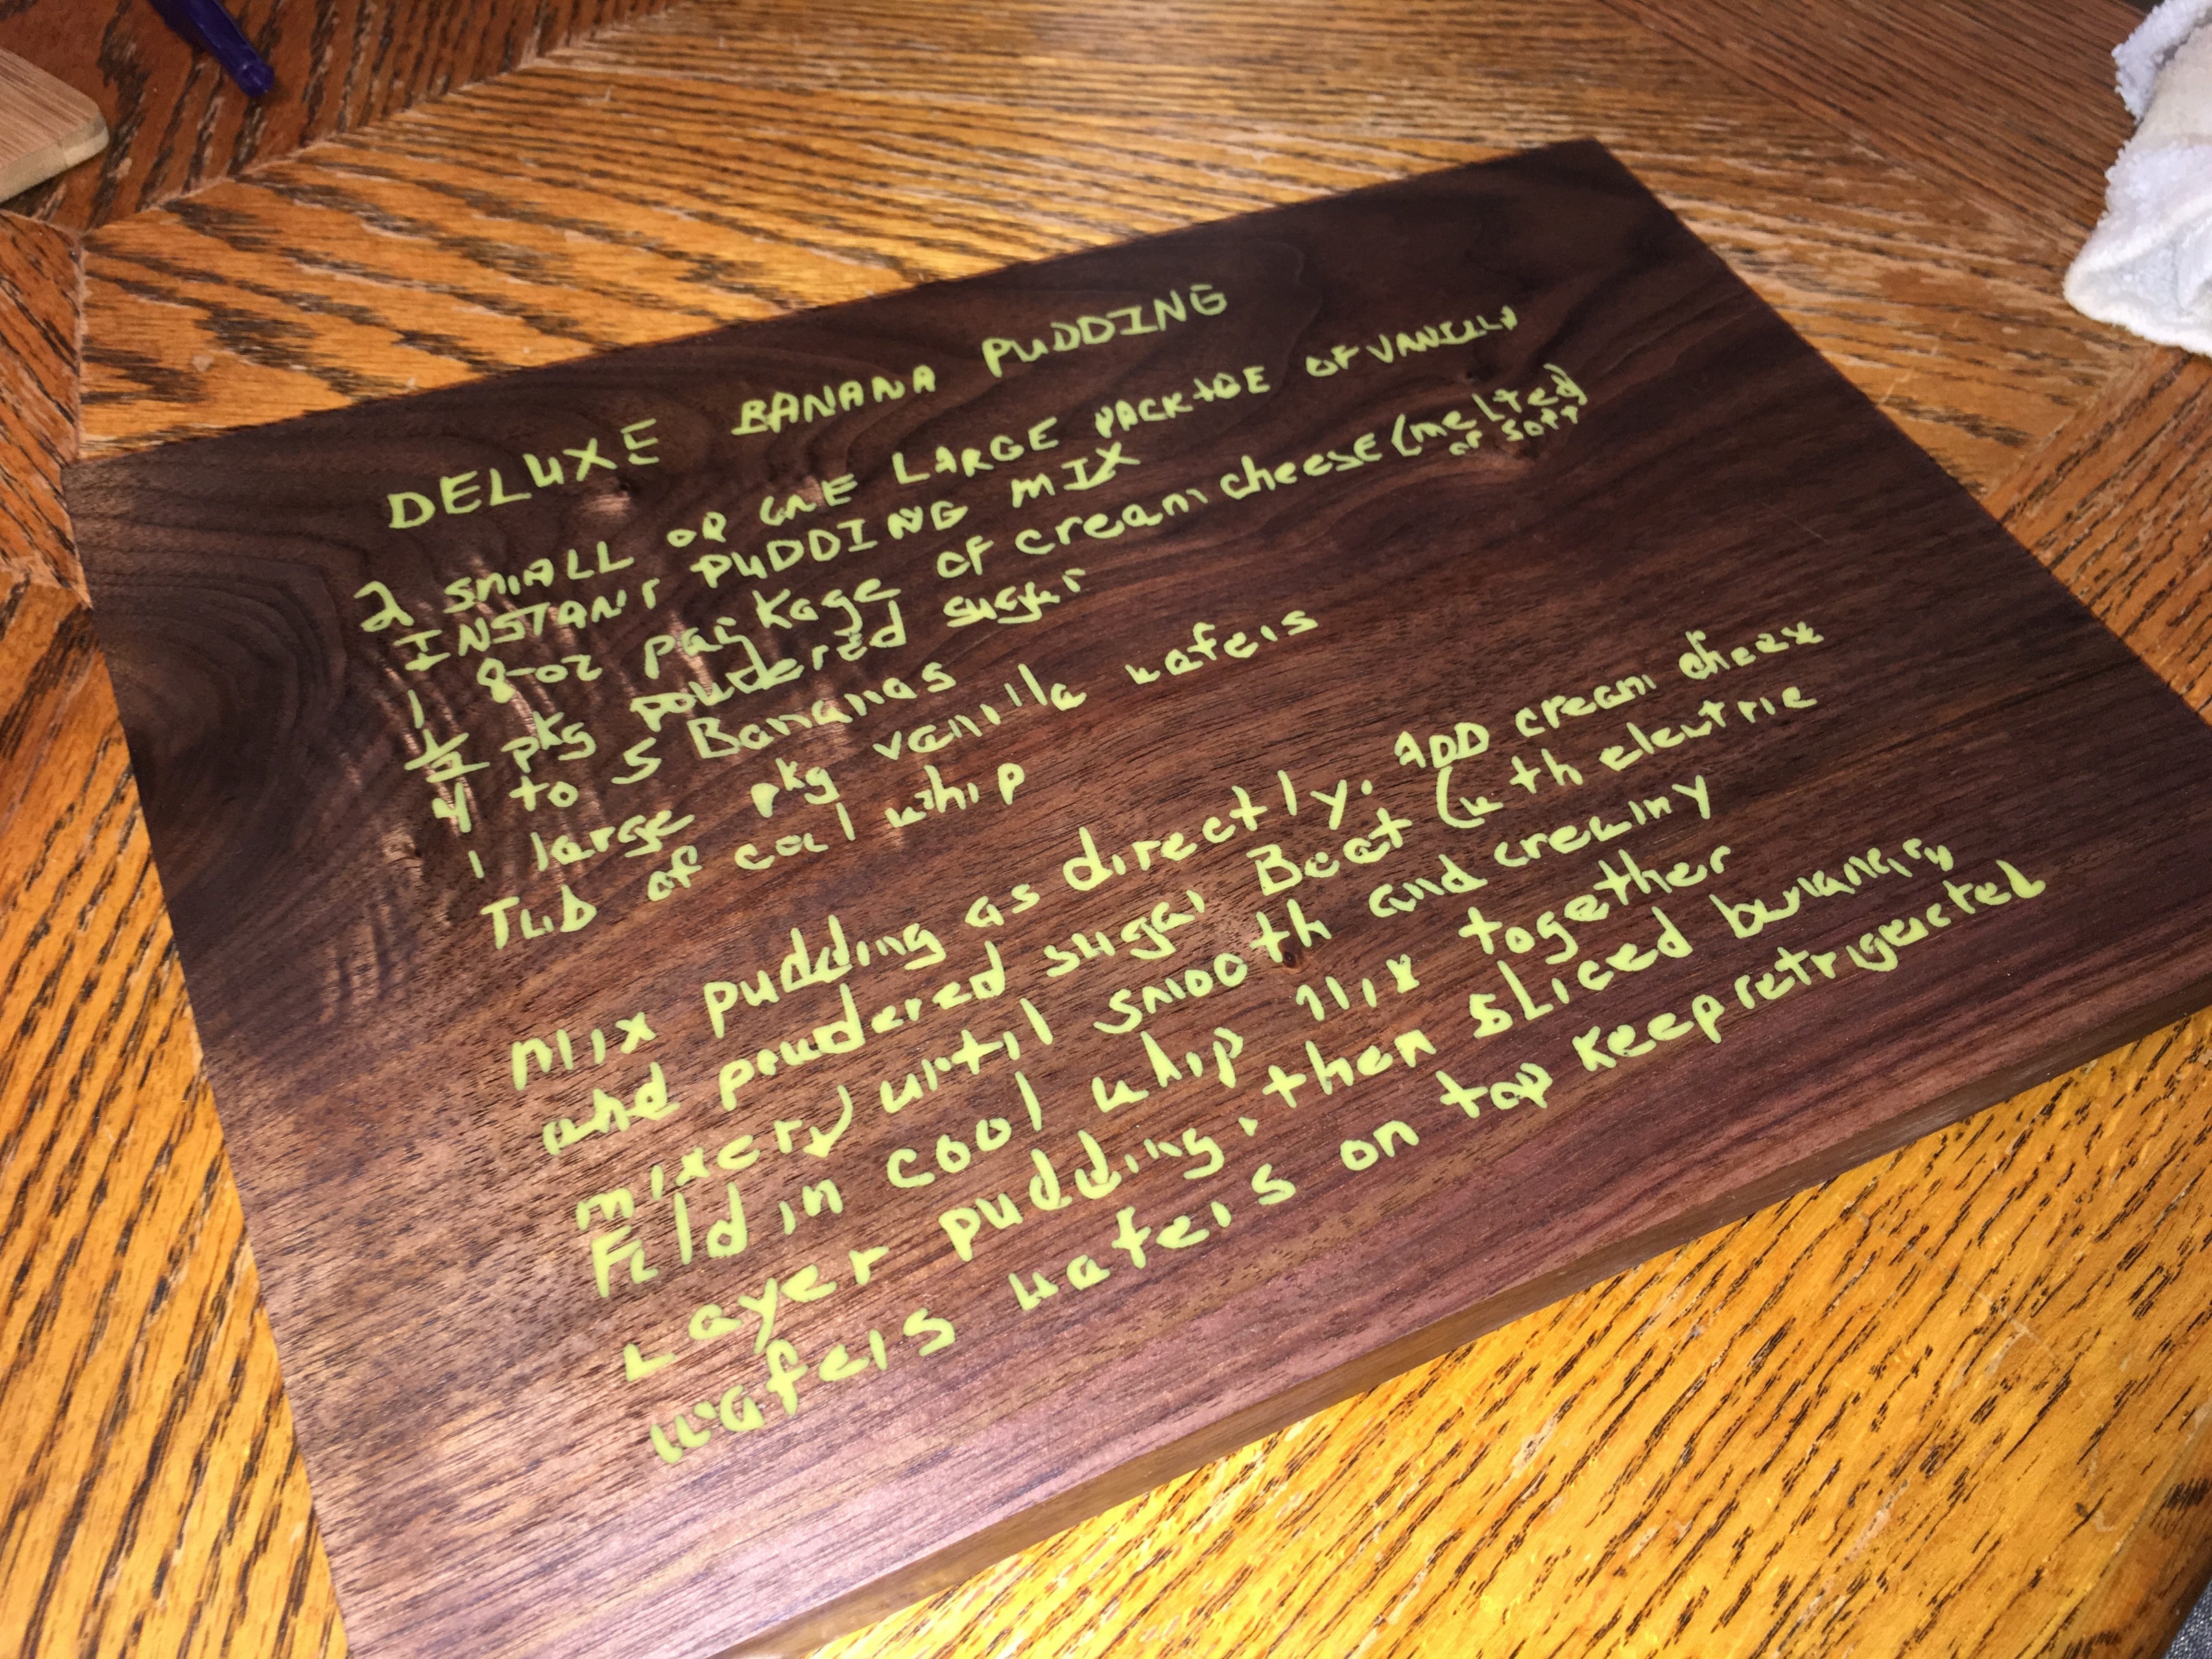 DELUXE BANANA PUDDING
2 SMALL OR ONE LARGE PACKAGE OF VANILLA
INSTANT PUDDING MIX
1 8-oz package of cream cheese (melted
or soft)
½ pkg powdered sugar
4 to 5 Bananas
1 large pkg vanilla wafers
Tub of cool whip
Mix pudding as directly. ADD cream cheese
and powdered sugar Beat (with electric
mixer) until smooth and creamy
Fold in cool whip Mix together
Layer pudding, then sliced bananas,
wafers wafers on top Keep refrigerated